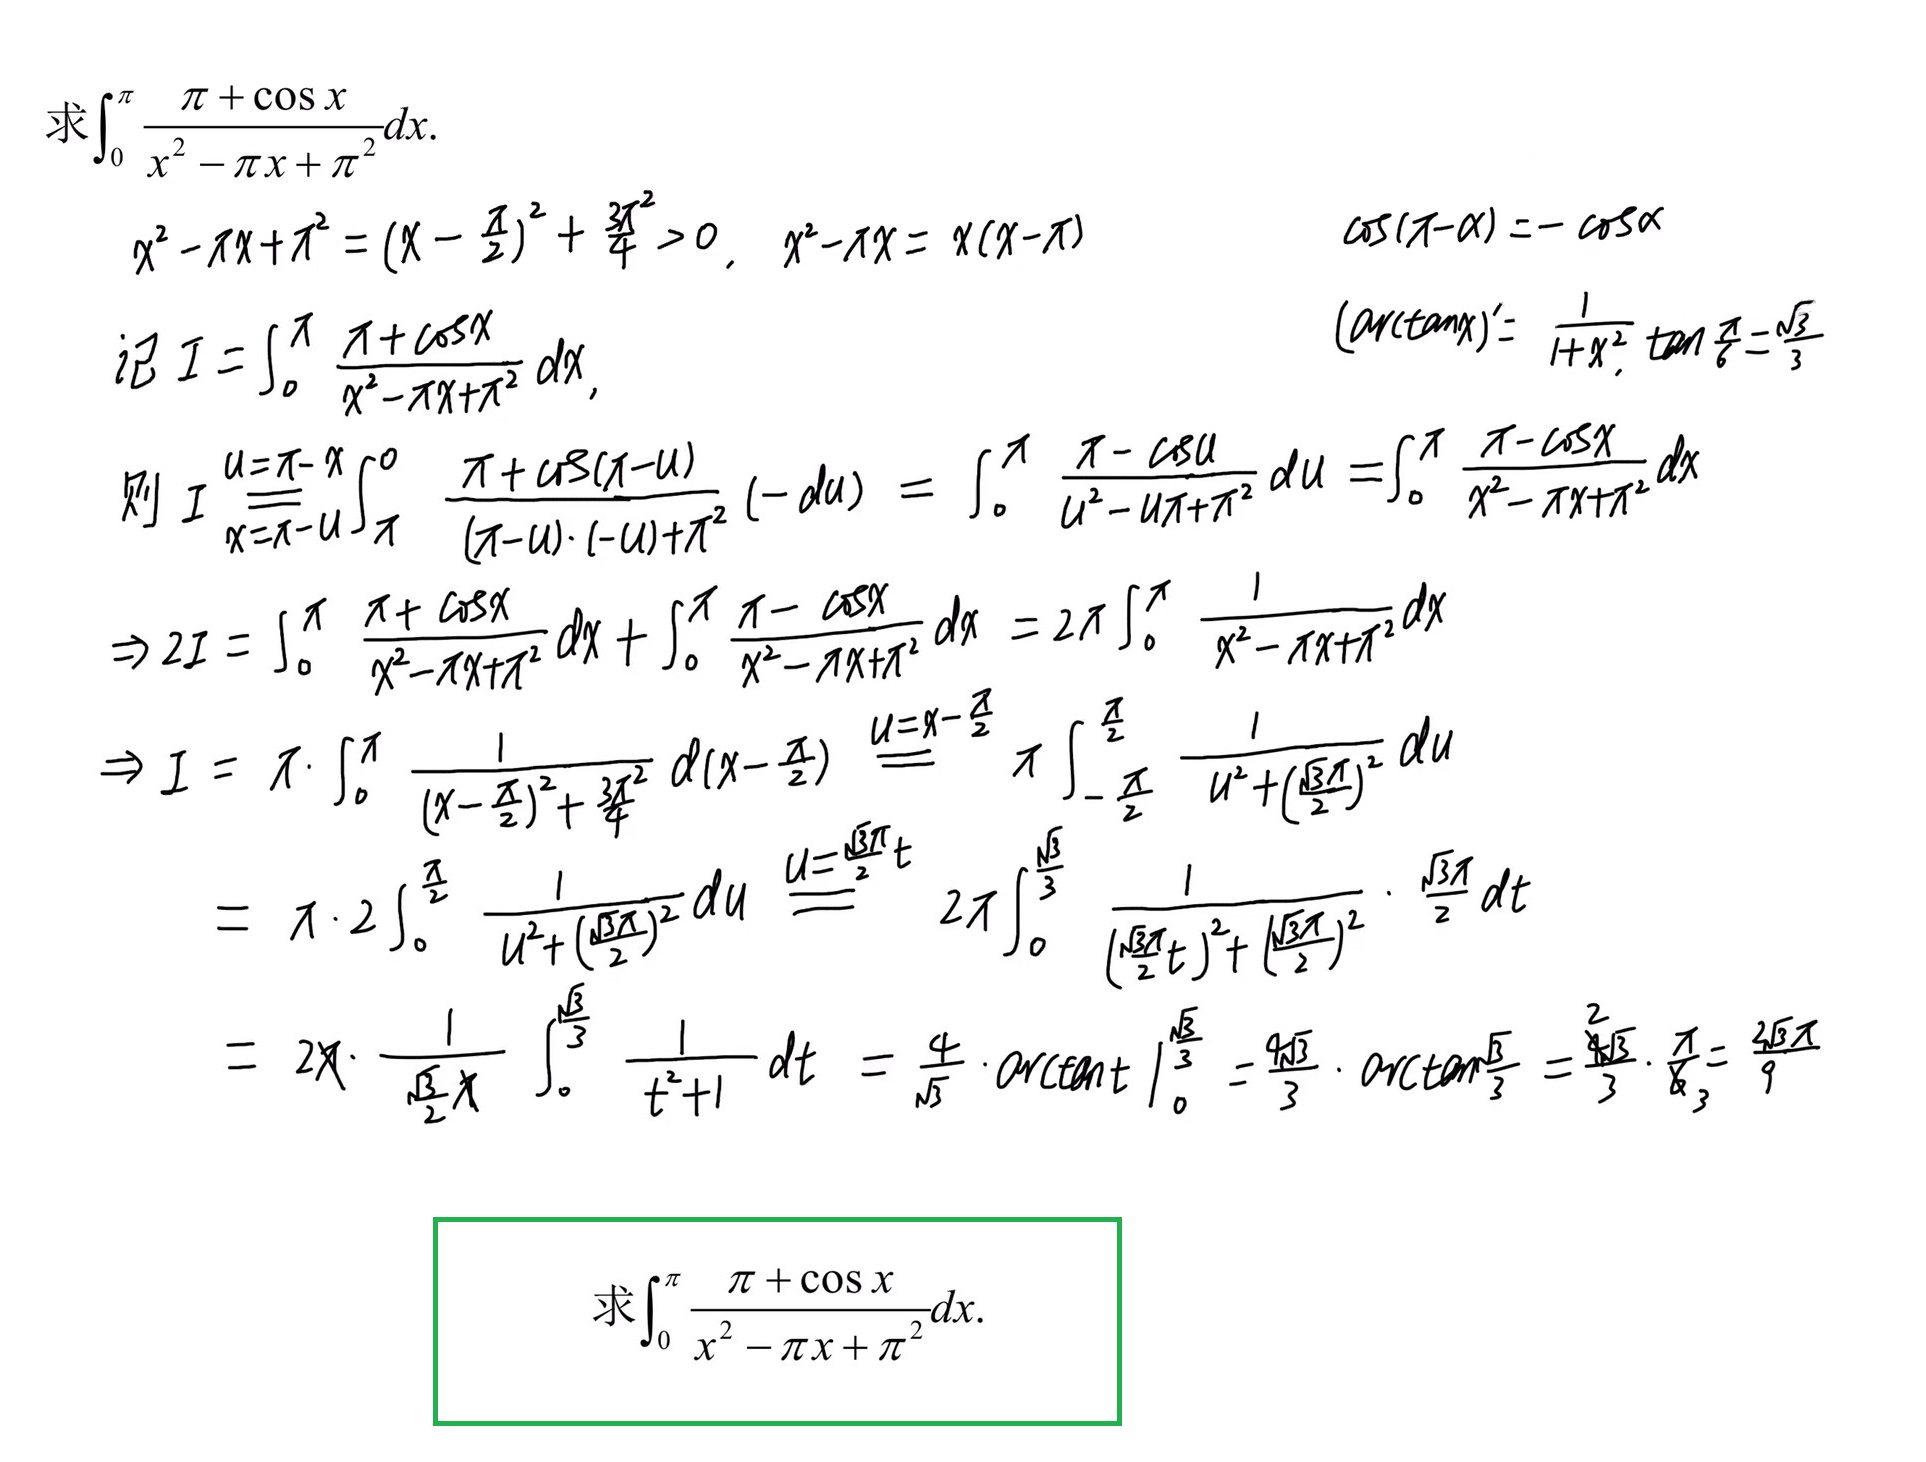 求∫₀^π (π + cos x)/(x² − πx + π²) dx.
x² − πx + π² = (x − π/2)² + 3π²/4 > 0, x² − πx = x(x − π)
cos(π − α) = − cosα
记 I = ∫₀^π (π + cosx)/(x² − πx + π²) dx,
(arctanx)′ = 1/(1 + x²), tan π/6 = √3/3
则 I = (u = π − x, x = π − u) ∫_π^0 (π + cos(π − u))/((π − u)·(−u) + π²) (−du) = ∫₀^π (π − cosu)/(u² − uπ + π²) du = ∫₀^π (π − cosx)/(x² − πx + π²) dx
⇒ 2I = ∫₀^π (π + cosx)/(x² − πx + π²) dx + ∫₀^π (π − cosx)/(x² − πx + π²) dx = 2π ∫₀^π 1/(x² − πx + π²) dx
⇒ I = π · ∫₀^π 1/((x − π/2)² + 3π²/4) d(x − π/2) = (u = x − π/2) π ∫_{−π/2}^{π/2} 1/(u² + (√3π/2)²) du
= π · 2 ∫₀^{π/2} 1/(u² + (√3π/2)²) du = (u = √3π/2 t) 2π ∫₀^{√3/3} 1/((√3π/2 t)² + (√3π/2)²) · √3π/2 dt
= 2π · 1/(√3/2 π) ∫₀^{√3/3} 1/(t² + 1) dt = 4/√3 · arctant |₀^{√3/3} = 4√3/3 · arctan √3/3 = 2 4√3/3 · π/6 3 = 2√3π/9
求∫₀^π (π + cos x)/(x² − πx + π²) dx.